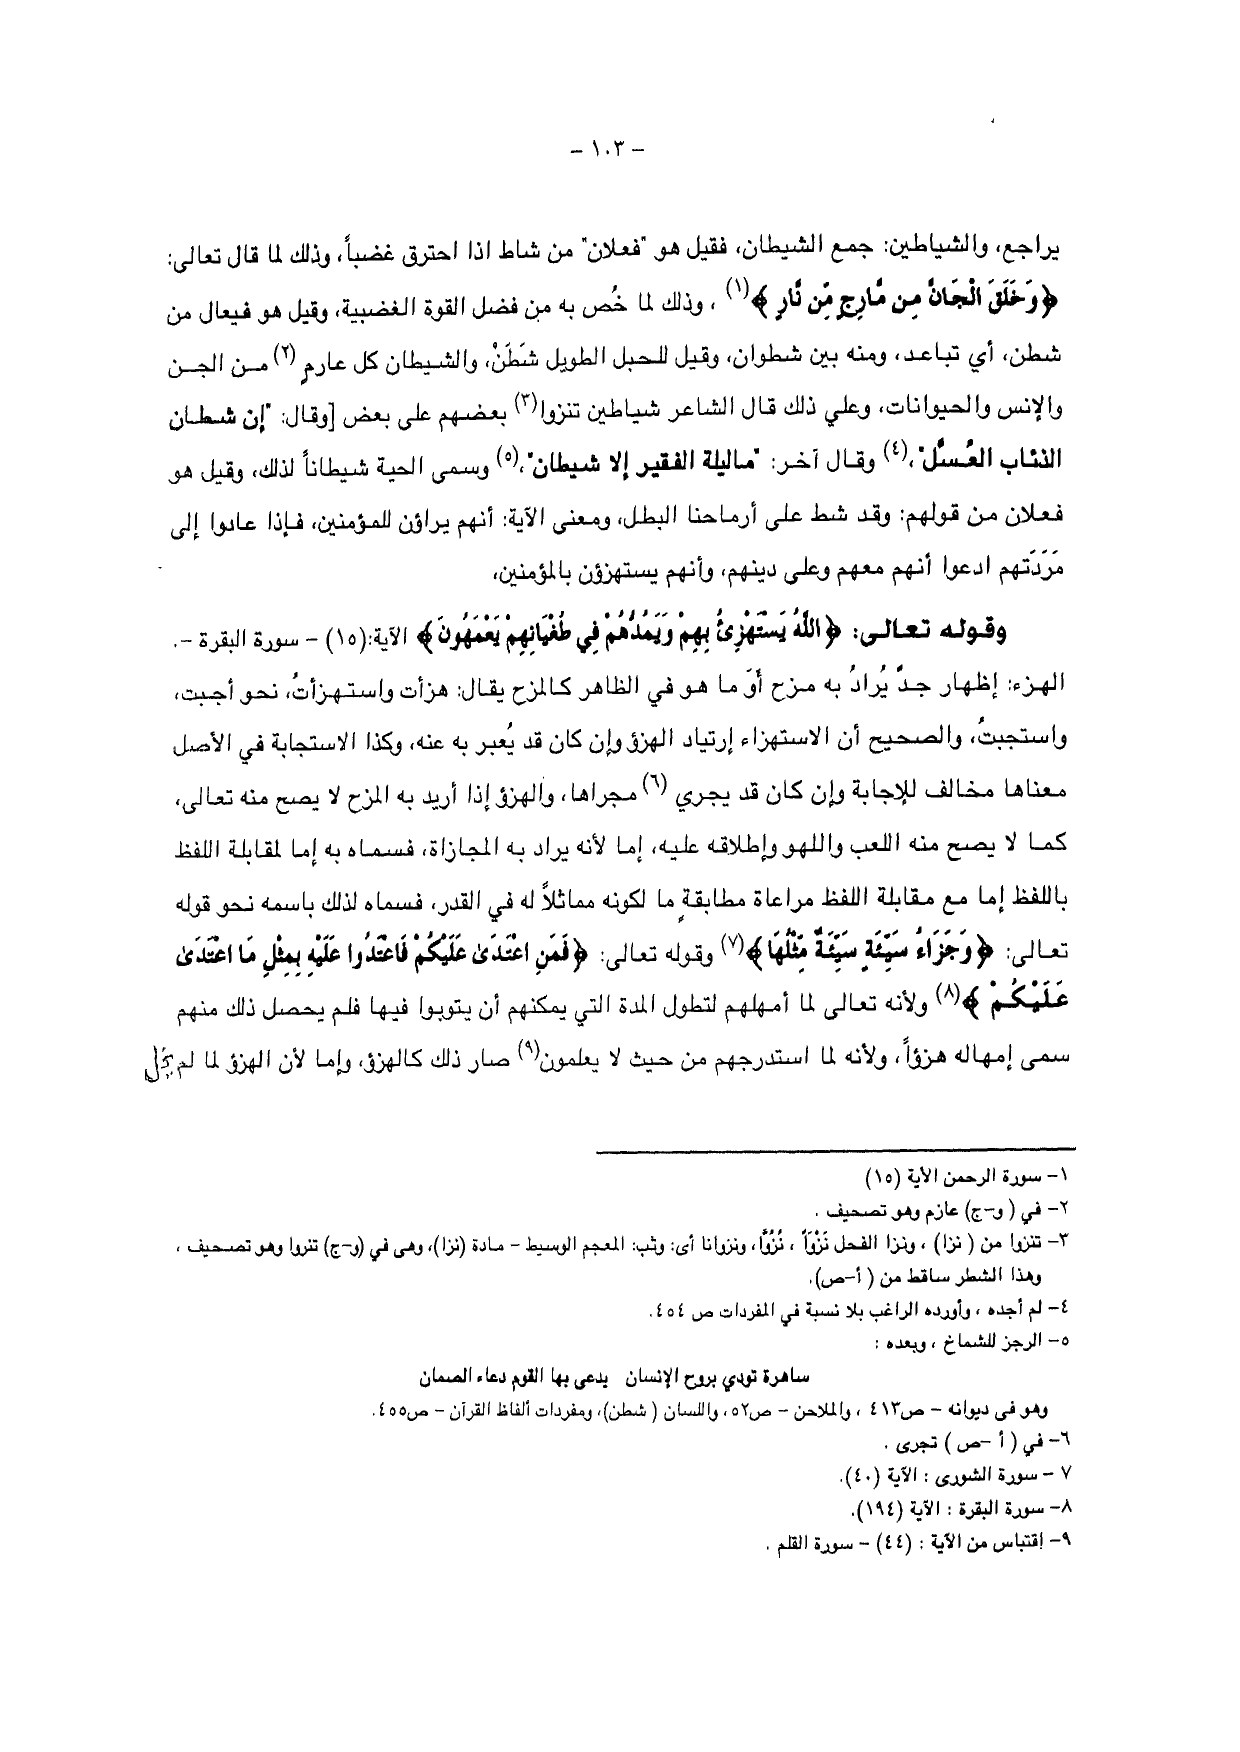 – ١٠٣ –
يراجع، والشياطين: جمع الشيطان، فقيل هو "فعلان" من شاط اذا احترق غضباً، وذلك لما قال تعالى:
﴿وَخَلَقَ الْجَانَّ مِن مَّارِجٍ مِّن نَّارٍ﴾(١) ، وذلك لما خُص به من فضل القوة الغضبية، وقيل هو فيعال من
شطن، أي تباعد، ومنه بين شطوان، وقيل للحبل الطويل شَطَنْ، والشيطان كل عارم (٢) من الجن
والإنس والحيوانات، وعلي ذلك قال الشاعر شياطين تنزوا(٣) بعضهم على بعض [وقال: "إن شطان
الذئاب العُسَّل"،(٤) وقال آخر: "ماليلة الفقير إلا شيطان"،(٥) وسمى الحية شيطاناً لذلك، وقيل هو
فعلان من قولهم: وقد شط على أرماحنا البطل، ومعنى الآية: أنهم يراؤن للمؤمنين، فإذا عادوا إلى
مَرَدَتهم ادعوا أنهم معهم وعلى دينهم، وأنهم يستهزؤن بالمؤمنين،
وقوله تعالى: ﴿اللَّهُ يَسْتَهْزِئُ بِهِمْ وَيَمُدُّهُمْ فِي طُغْيَانِهِمْ يَعْمَهُونَ﴾ الآية:(١٥) – سورة البقرة –.
الهزء: إظهار جدٍّ يُرادُ به مزح أوَ ما هو في الظاهر كالمزح يقال: هزأت واستهزأتُ، نحو أجبت،
واستجبتُ، والصحيح أن الاستهزاء إرتياد الهزؤ وإن كان قد يُعبر به عنه، وكذا الاستجابة في الأصل
معناها مخالف للإجابة وإن كان قد يجري (٦) مجراها، والهزؤ إذا أريد به المزح لا يصح منه تعالى،
كما لا يصح منه اللعب واللهو وإطلاقه عليه، إما لأنه يراد به المجازاة، فسماه به إما لمقابلة اللفظ
باللفظ إما مع مقابلة اللفظ مراعاة مطابقةٍ ما لكونه مماثلاً له في القدر، فسماه لذلك باسمه نحو قوله
تعالى: ﴿وَجَزَاءُ سَيِّئَةٍ سَيِّئَةٌ مِّثْلُهَا﴾(٧) وقوله تعالى: ﴿فَمَنِ اعْتَدَىٰ عَلَيْكُمْ فَاعْتَدُوا عَلَيْهِ بِمِثْلِ مَا اعْتَدَىٰ
عَلَيْكُمْ﴾(٨) ولأنه تعالى لما أمهلهم لتطول المدة التي يمكنهم أن يتوبوا فيها فلم يحصل ذلك منهم
سمى إمهاله هزؤاً، ولأنه لما استدرجهم من حيث لا يعلمون(٩) صار ذلك كالهزؤ، وإما لأن الهزؤ لما لم
١– سورة الرحمن الآية (١٥)
٢– في ( و–ج) عازم وهو تصحيف .
٣– تنزوا من ( نزا) ، ونزا الفحل نَزْواً ، نُزُوًّا، ونزوانا أى: وثب: المعجم الوسيط – مادة (نزا)، وهى في (و–ج) تنروا وهو تصحيف ،
وهذا الشطر ساقط من ( أ–ص).
٤– لم أجده ، وأورده الراغب بلا نسبة في المفردات ص ٤٥٤.
٥– الرجز للشماخ ، وبعده :
ساهرة تودي بروح الإنسان   يدعى بها القوم دعاء الصمان
وهو فى ديوانه – ص٤١٣ ، والملاحن – ص٥٢، واللسان ( شطن)، ومفردات ألفاظ القرآن – ص٤٥٥.
٦– في ( أ –ص ) تجرى .
٧ – سورة الشورى : الآية (٤٠).
٨– سورة البقرة : الآية (١٩٤).
٩– إقتباس من الآية : (٤٤) – سورة القلم .